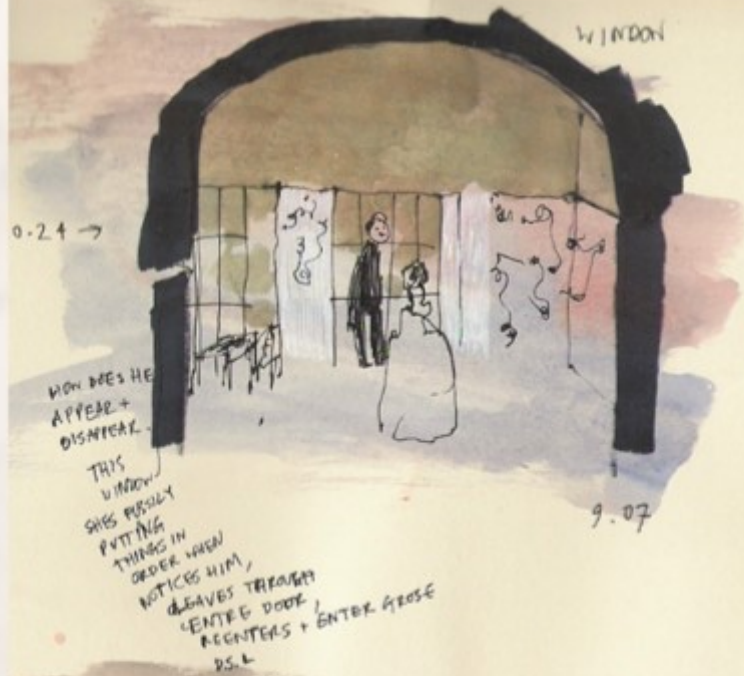 WINDOW
0.24 →
HOW DOES HE
APPEAR +
DISAPPEAR.
THIS
WINDOW
SHES BUSILY
PUTTING
THINGS IN
ORDER WHEN
NOTICES HIM,
LEAVES THROUGH
CENTRE DOOR,
REENTERS + ENTER GROSE
D.S.L
9.07